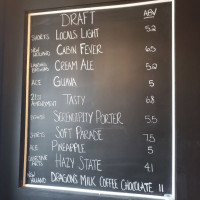 DRAFT ABV
SHORTS LOCALS LIGHT 5.2
NEW HOLLAND CABIN FEVER 6.5
CREAM ALE 5.2
ACE GUAVA 5
21ST AMENDMENT TASTY 6.8
SERENDIPITY PORTER 5.5
SHORTS SOFT PARADE 7.5
ACE PINEAPPLE 5
HAZY STATE 4.1
NEW HOLLAND DRAGONS MILK COFFEE CHOCOLATE 11